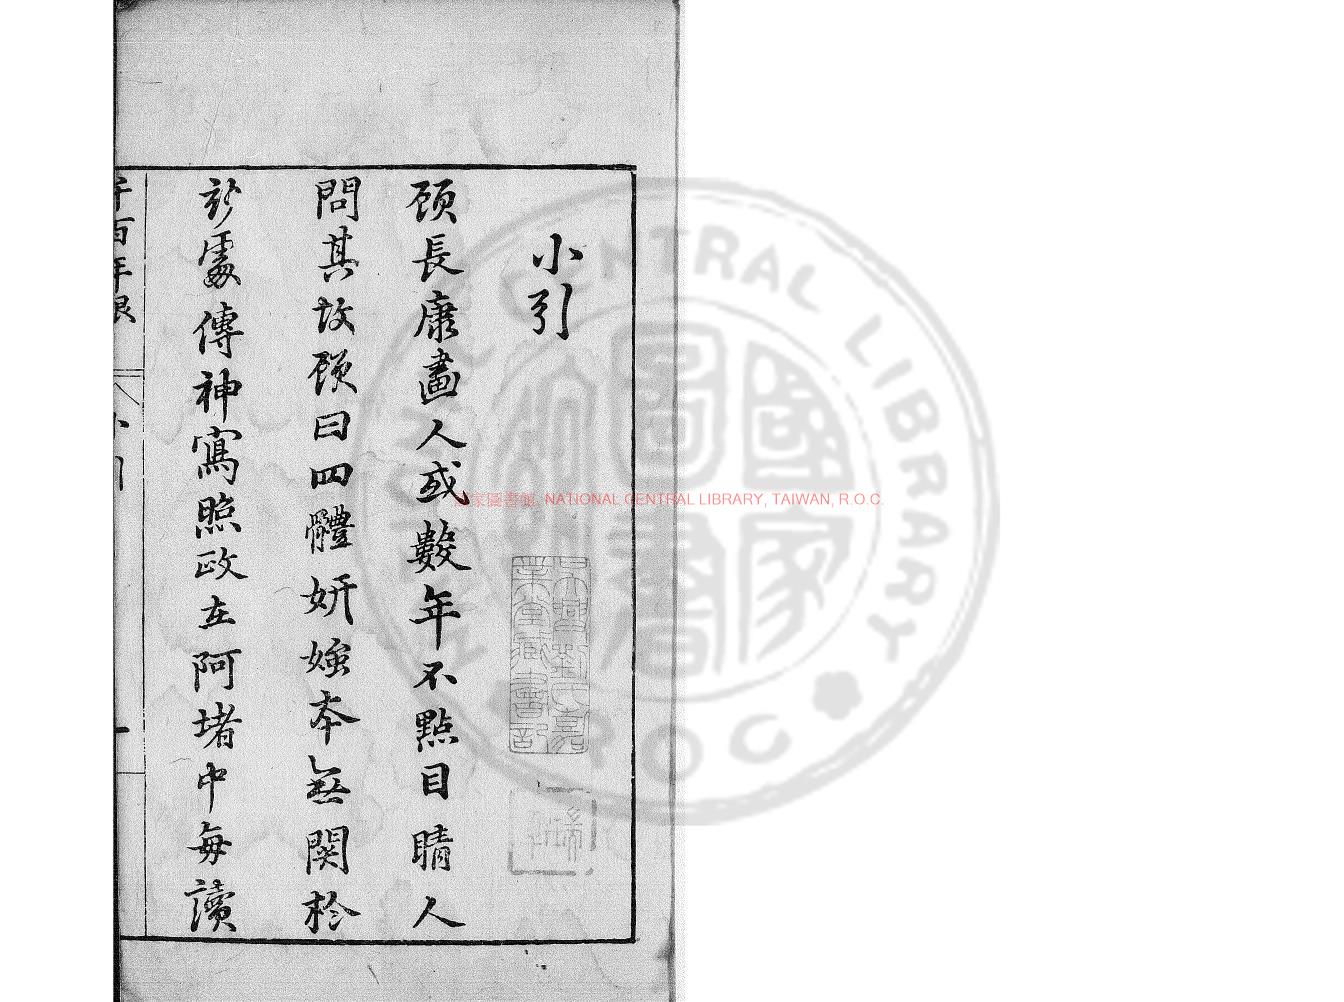 小引
顧長康畫人或數年不點目睛人
問其故顧曰四體妍媸本無關於
妙處傳神寫照政在阿堵中每讀
千百年眼
小引
一
吳興劉氏嘉
業堂藏書記
國家圖書館
NATIONAL CENTRAL LIBRARY, TAIWAN, R.O.C.
CENTRAL LIBRARY
ROC